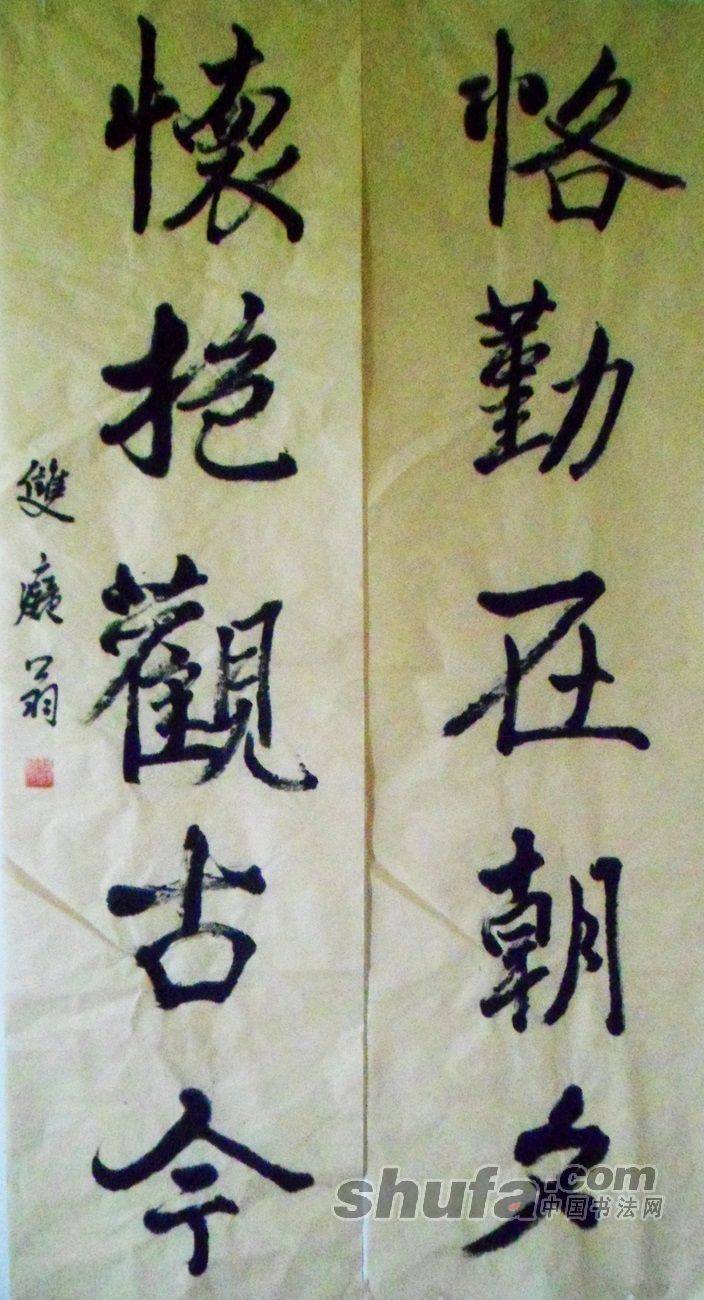 恪勤在朝夕
懷抱觀古今
雙廎翁
shufa.com
中国书法网